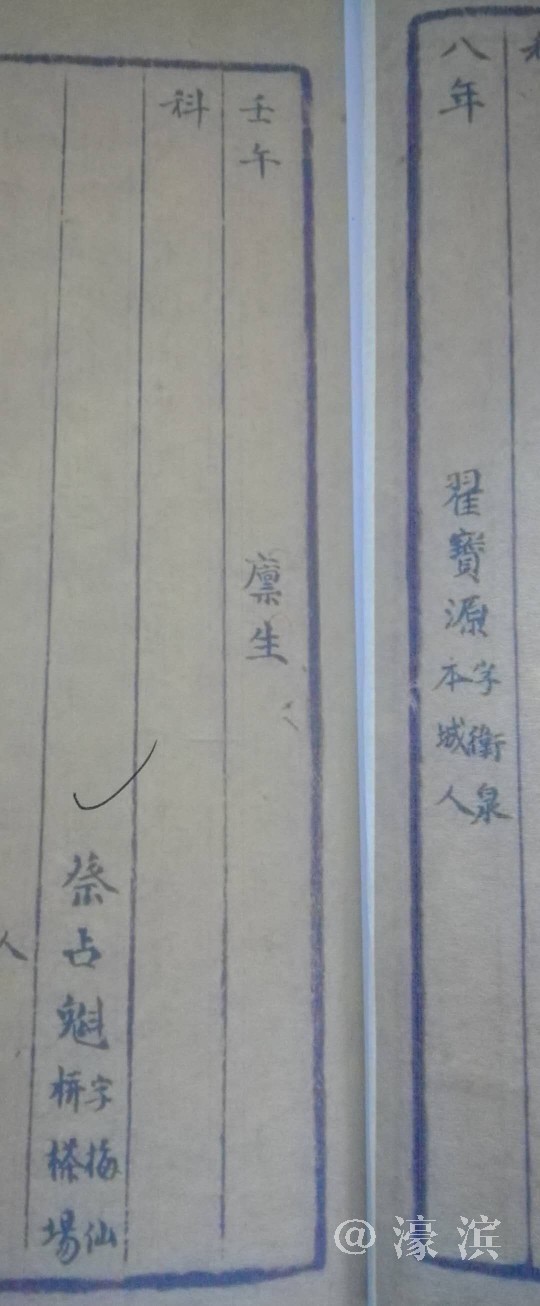 八年
翟寶源
字衡泉
本城人
壬午
廪生
科
蔡占魁
字梅仙
栟場
人
@濠滨